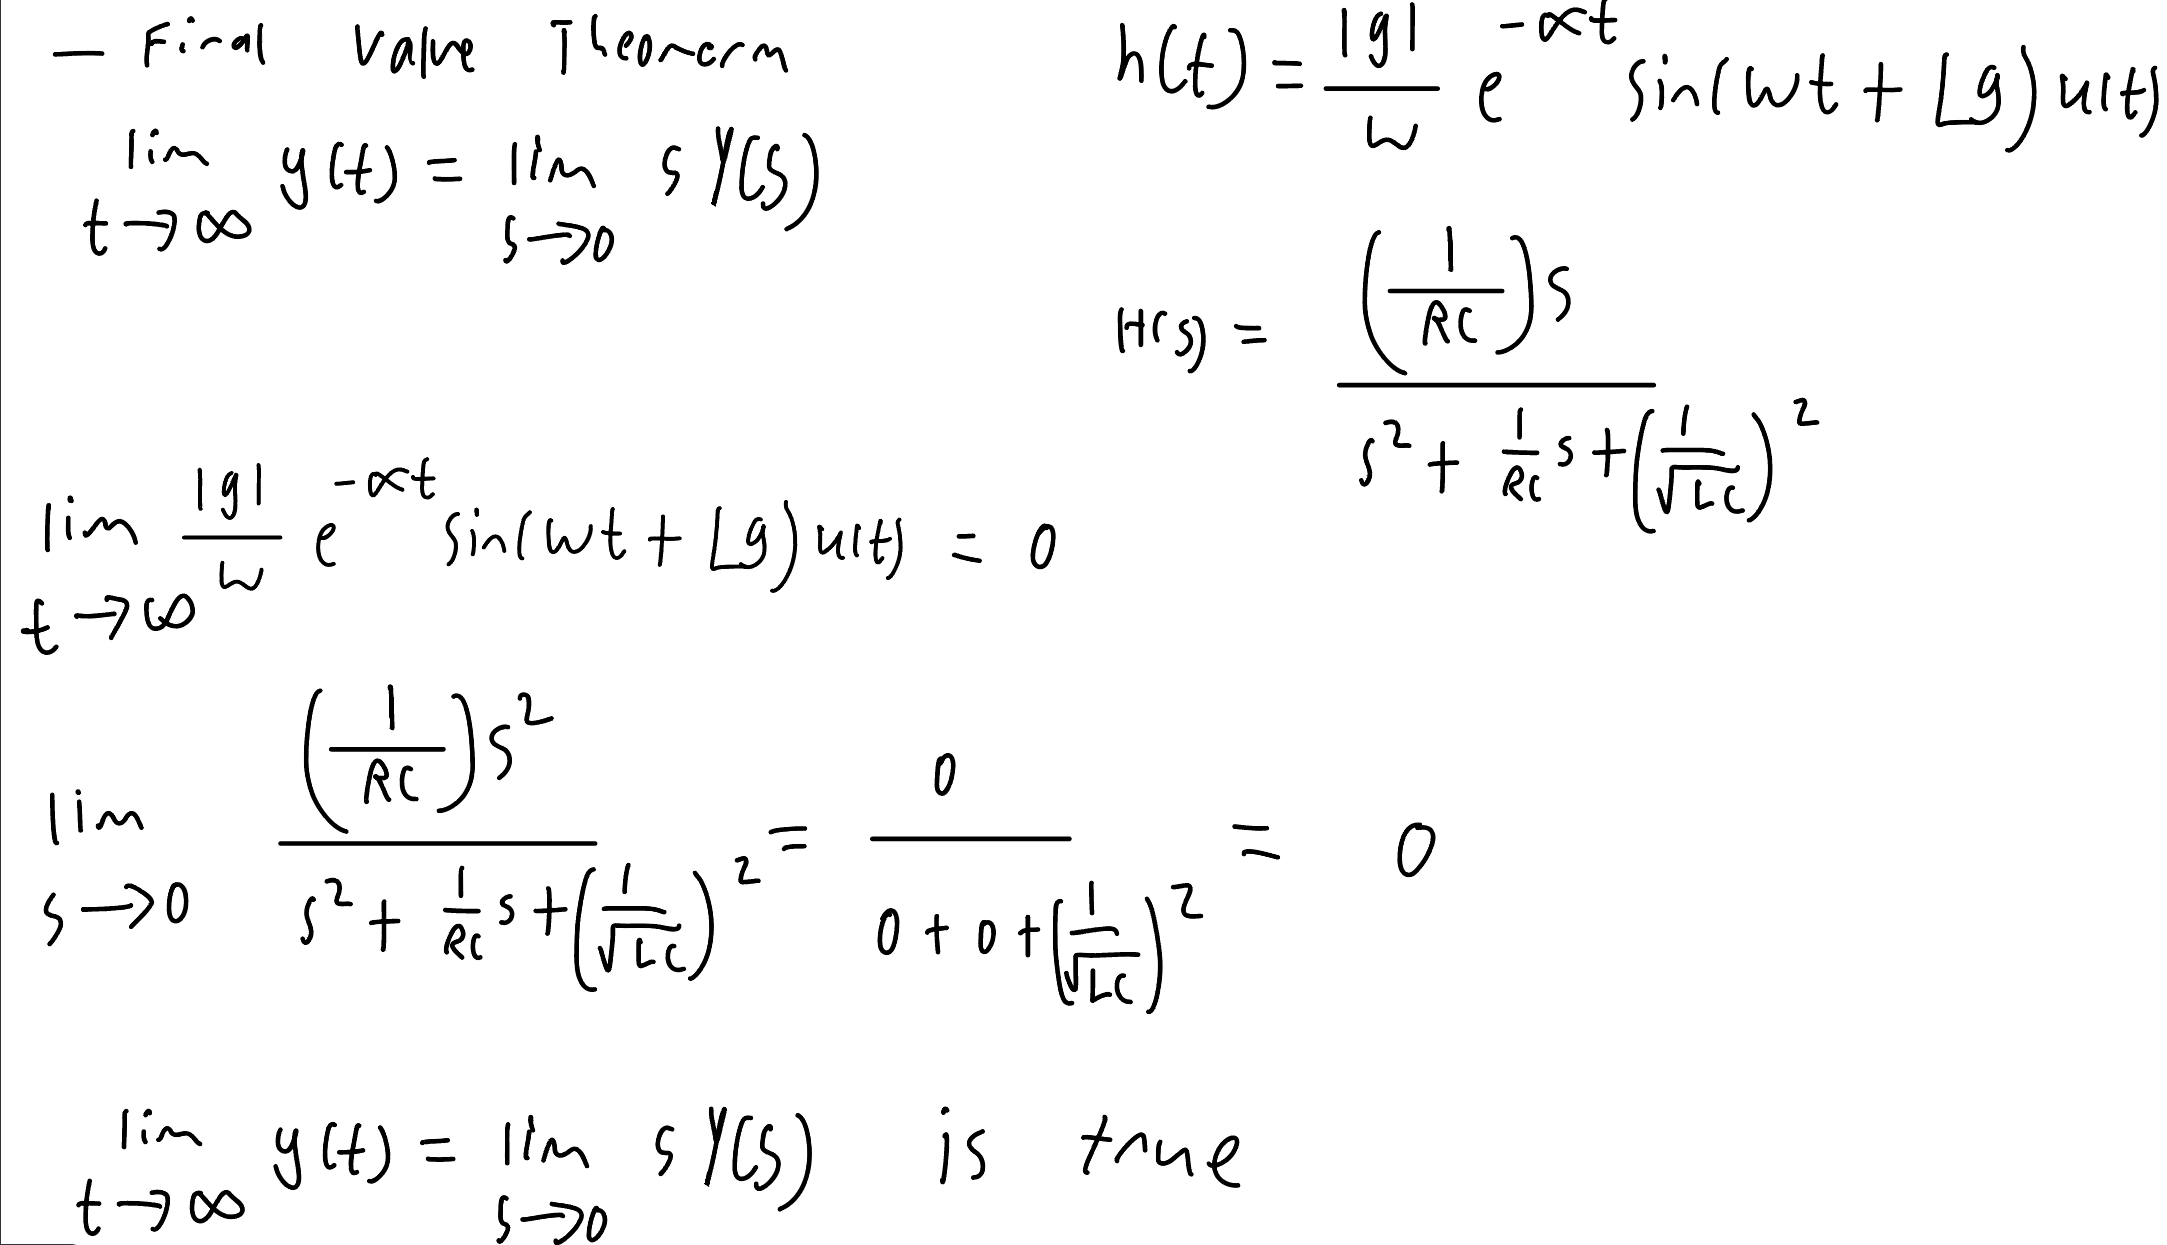 — Final Value Theorem
lim_{t→∞} y(t) = lim_{s→0} s Y(s)
h(t) = |g|/w e^{-αt} sin(wt + ∠g) u(t)
H(s) = (1/RC)s / (s² + 1/RC s + (1/√LC)²)
lim_{t→∞} |g|/w e^{-αt} sin(wt + ∠g) u(t) = 0
lim_{s→0} (1/RC)s² / (s² + 1/RC s + (1/√LC)²) = 0 / (0 + 0 + (1/√LC)²) = 0
lim_{t→∞} y(t) = lim_{s→0} s Y(s) is true